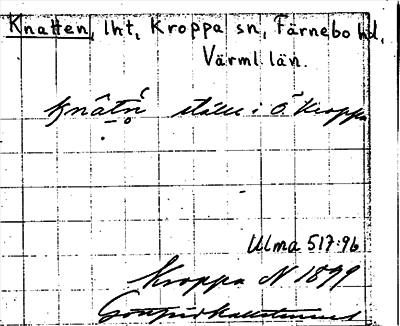 Knatten, lht, Kroppa sn, Färnebo hd,
Värml. län.
ställe i Ö Kroppa
Ulma 517:96
Kroppa N 1899